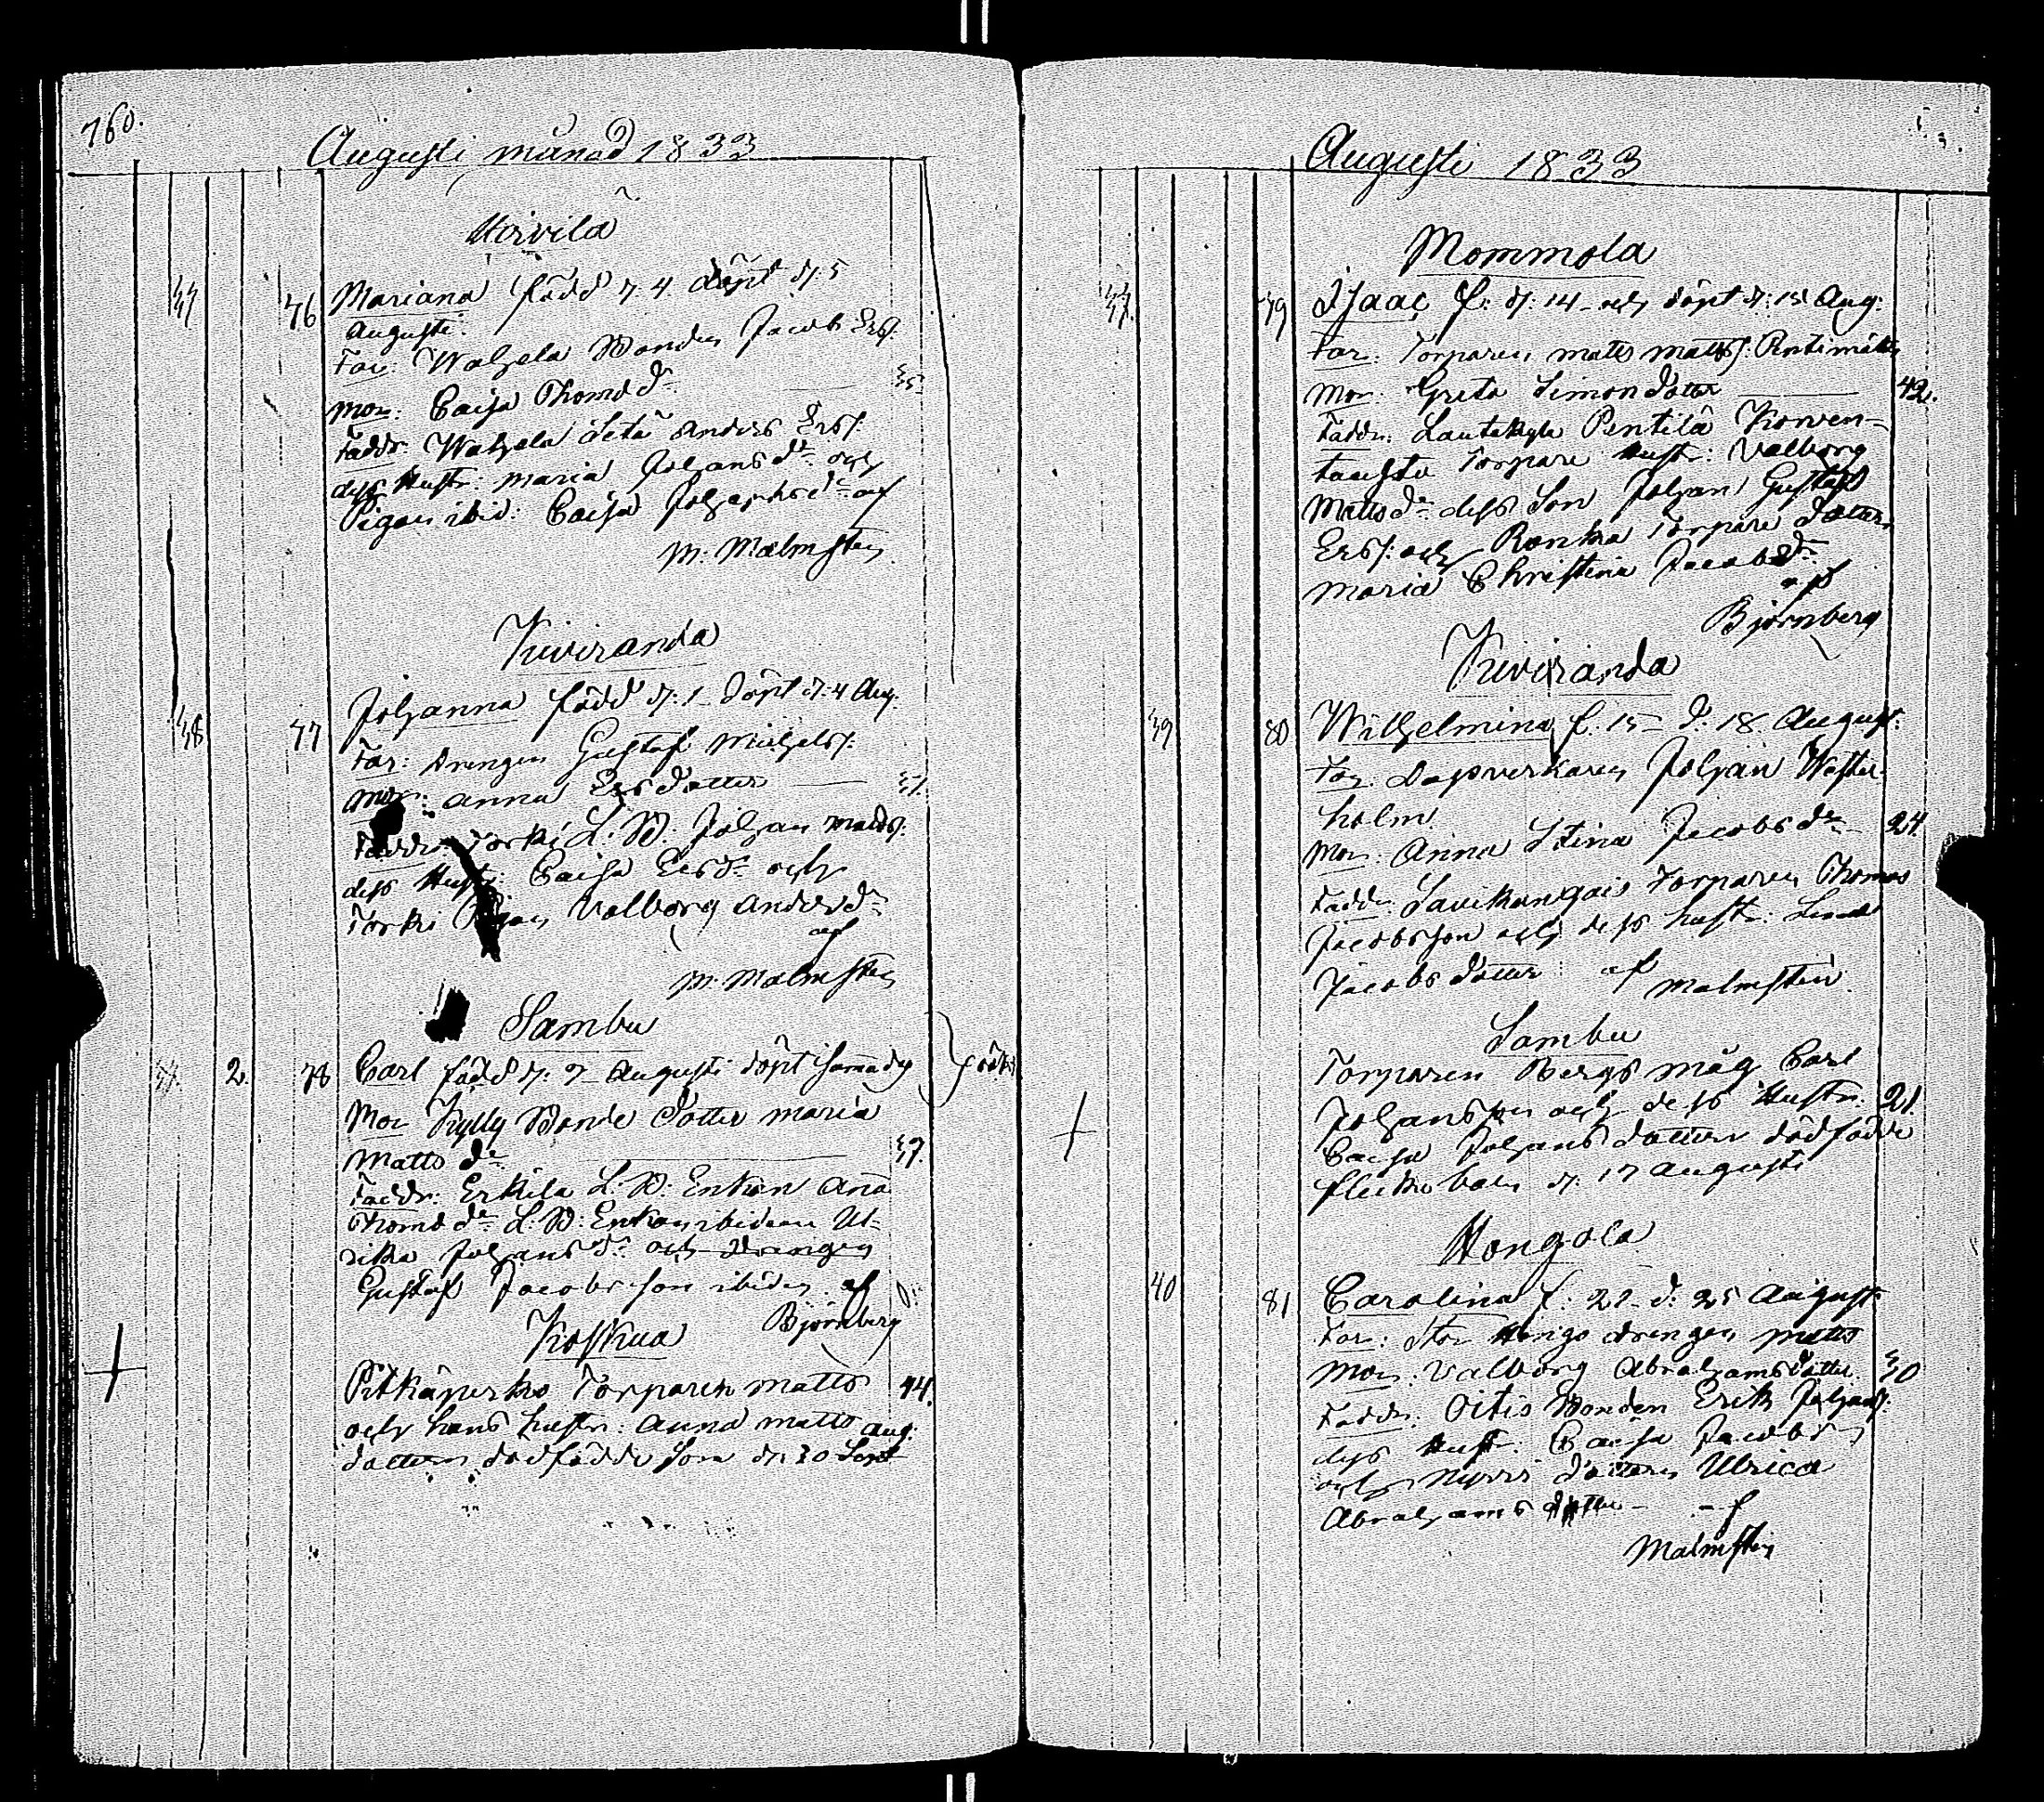 760.
Augusti månad 1833
Hirvilä
37 76 Mariana född d. 4. döpt d. 5
Augusti.
Far: Bonden Jacob Ers:
Mor: Caisa Thomsdr 35
Faddr: Anders Ers:
dess Hustr: Maria Johansdr och
Pigan ibid: Caisa Johansdr af
M. Malmsten
Kiviranda
38 77 Johanna född d: 1 döpt d: 4 Aug.
Far: Drengen Gustaf Michels:
Mor: Anna Ersdotter 31.
Faddr: Torki L. B. Johan Matts:
dess Hustr: Caisa Ersdr och
Torki Pigan Valborg Andersdr
af
M. Malmsten
Sambu
2. 78 Carl född d: 7 Augusti döpt samma dag
Mor Kylly Bonde Dotter Maria
Matts dr 37.
Faddr: Erkila L. B: Enkan Ana
Thoms dr L. B: Enkan ibidem Ul-
rika Johansdr och Drengen
Gustaf Jacobsson ibidem af
Björnberg
Koskua
Pitkäperko Torparen Matts 44.
och hans hustr: Anna Matts Aug:
dotters dödfödde Son d. 30 Sept
Augusti 1833
Mommola
37. 79 Isaac f: d: 14 och döpt d: 15 Aug:
Far: Torparen Matts Matts:
Mor: Greta Simonsdotter 42.
Faddr: Lautakyla Pentilä Korven-
tausta Torpare Hustr: Valborg
Mattsdr dess Son Johan Gustaf
Ers: och Ronka Torpare dottern
Maria Christina Jacobsdr
af
Björnberg
Kiviranda
39 80 Wilhelmina f. 15 D. 18. August:
Far: Dagsverkaren Johan Wester-
holm
Mor: Anna Stina Jacobsdr 24
Faddr: Savikangais Torparen Thomas
Jacobsson och dess hustr:
Jacobsdotter: af Malmsten.
Sambu
Torparen Bergs måg Carl
Johansson och dess Hustr: 21.
Caisa Johansdotters dödfödde
flicko barn d: 17 Augusti
Hongola
40 81 Carolina f: 22 d: 25 August
Far: Stor Hongo drengen Matts
Mor: Valborg Abrahamsdotter 30
Faddr: Oitis Bonden Erik Johans:
dess Hustr: Caisa Jacobsdr
och Nyrri dottern Ulrica
Abrahamsdotter af
Malmsten